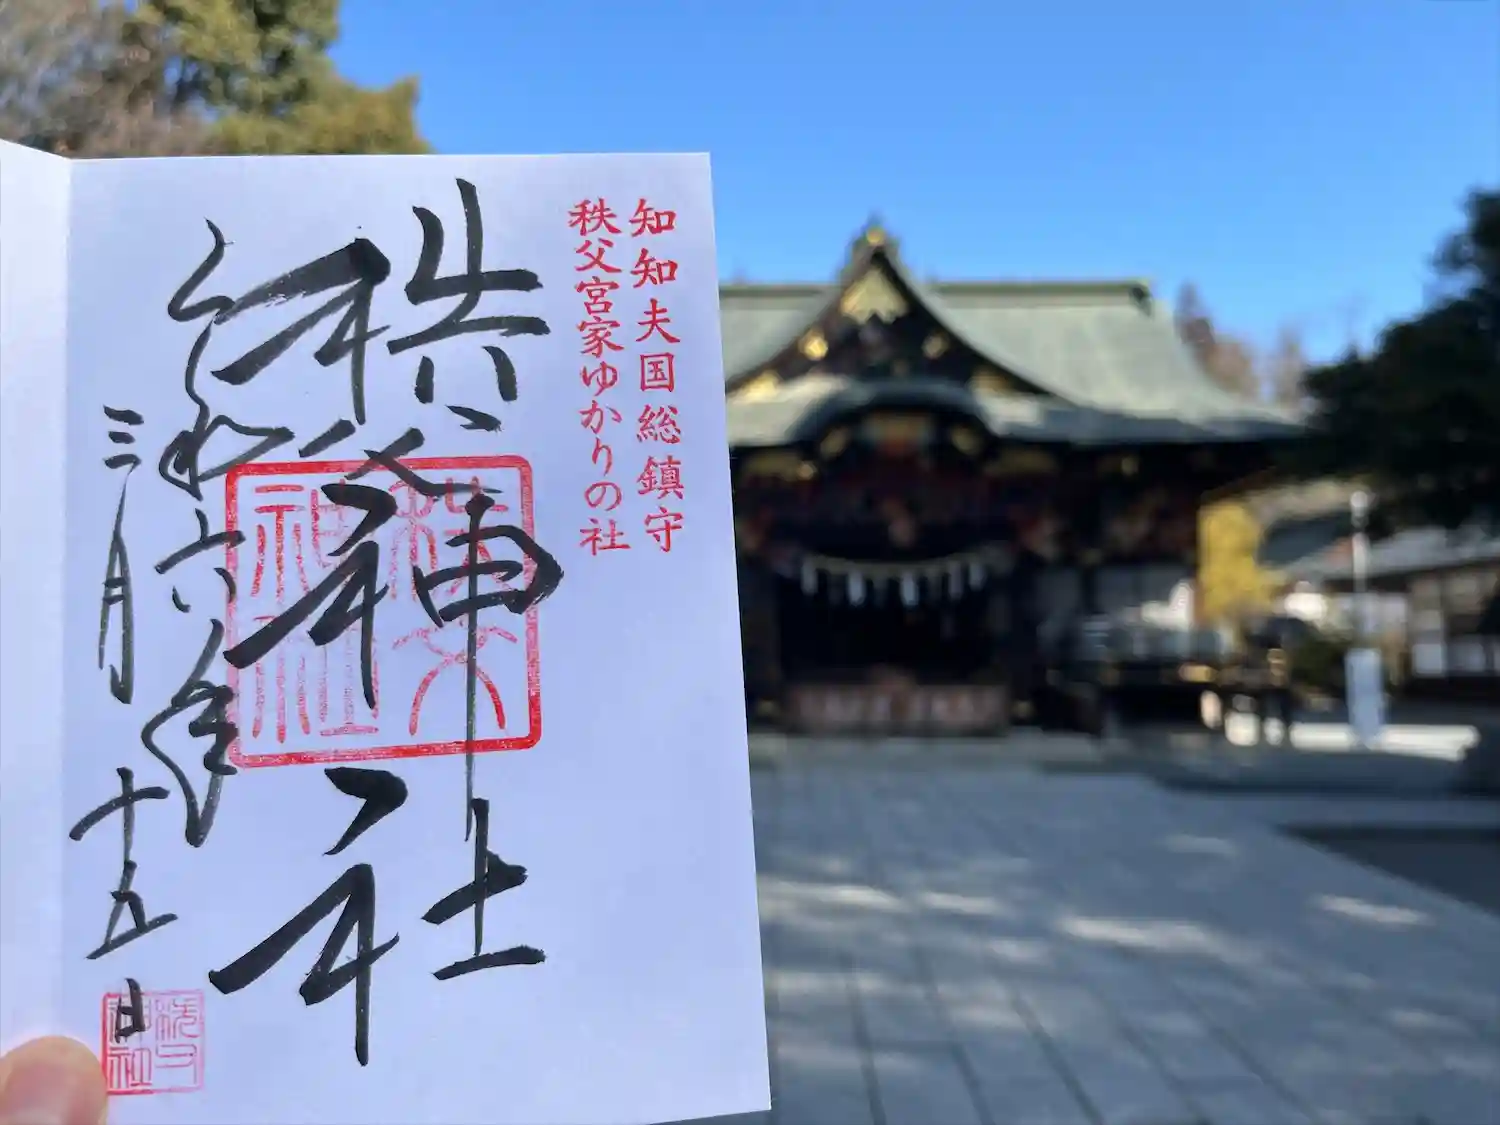 知知夫国総鎮守
秩父宮家ゆかりの社
秩父神社
令和六年
三月十五日
秩父
神社
秩父
神社